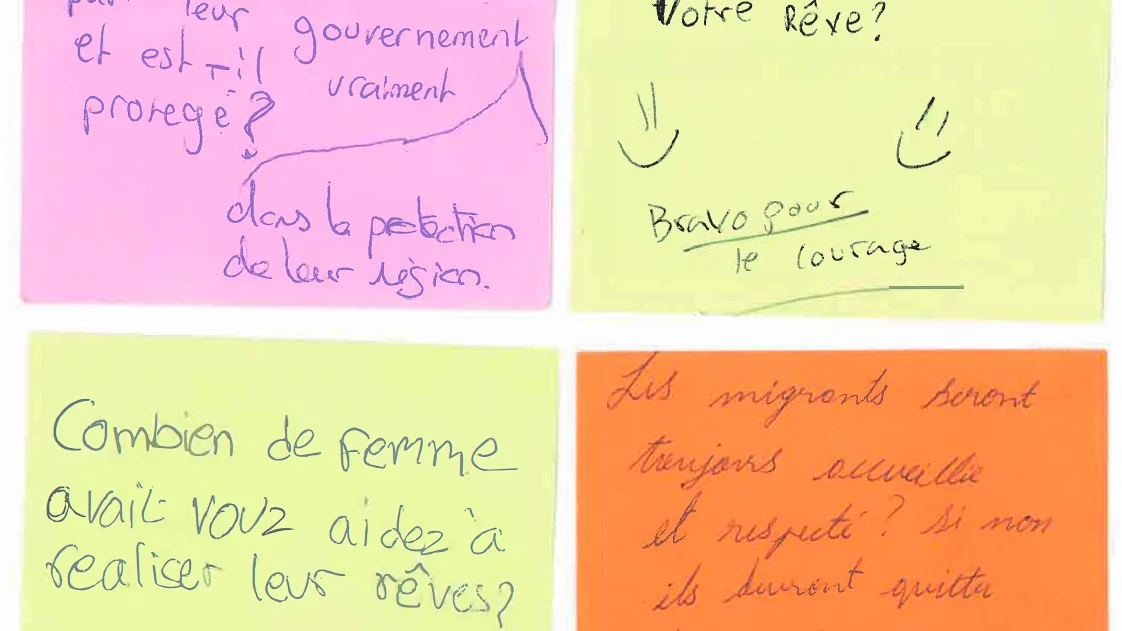 par leur gouvernement
et est-il vraiment
protegé ?
dans la protection
de leur région.
Votre Rêve ?
Bravo pour
le courage
Combien de femme
avait vouz aidez à
realiser leur rêves ?
Les migrants seront
toujours accueillie
et respecté ? si non
ils devront quitter